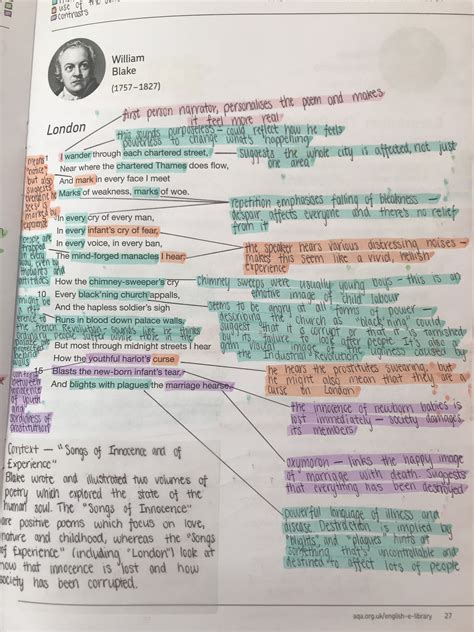 use of the
contrasts
William
Blake
(1757–1827)
first person narrator, personalises the poem and makes
it feel more real
London
this sounds purposeless – could reflect how he feels
powerless to change what's happening
I wander through each chartered street,
suggests the whole city is affected, not just
one area
Near where the chartered Thames does flow,
And mark in every face I meet
Marks of weakness, marks of woe.
means
"notice"
but also
suggests
everyone he
sees is
marked by
experience
repetition emphasises feeling of bleakness –
despair affects everyone and there's no relief
from it
In every cry of every man,
In every infant's cry of fear,
In every voice, in every ban,
The mind-forged manacles I hear:
the speaker hears various distressing noises –
makes this seem like a vivid, hellish
experience
people are
trapped
in every
way, even by
thoughts and
attitudes
How the chimney-sweeper's cry
chimney sweeps were usually young boys – this is an
emotive image of child labour
Every black'ning church appalls,
And the hapless soldier's sigh
Runs in blood down palace walls;
seems to be angry at all forms of power –
describing the church as "black'ning" could
suggest that it is corrupt or that it is tarnished
by its failure to look after people. It's also a
vivid visual image of the ugliness caused by
the Industrial Revolution
might be
the French Revolution – sounds like he thinks
But most through midnight streets I hear
How the youthful harlot's curse
he hears the prostitutes swearing, but
he might also mean that they are a
curse on London
15
Blasts the new-born infant's tear,
And blights with plagues the marriage hearse.
contrast
between
innocence
of youth
and
sordidness of
prostitution
the innocence of newborn babies is
lost immediately – society damages
its members
oxymoron – links the happy image
of marriage with death. Suggests
that everything has been destroyed
powerful language of illness and
disease. Destruction is implied by
"blights", and "plagues" hints at
something that's uncontrollable and
destined to affect lots of people
Context – "Songs of Innocence and of
Experience"
Blake wrote and illustrated two volumes of
poetry which explored the state of the
human soul. The "Songs of Innocence"
are positive poems which focus on love,
nature and childhood, whereas the "Songs
of Experience" (including "London") look at
how that innocence is lost and how
society has been corrupted.
aqa.org.uk/english-e-library 27